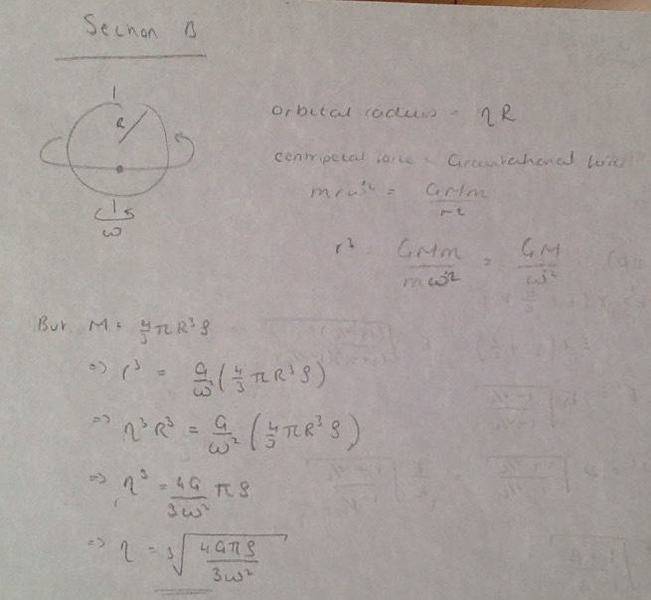 Section B
R
ω
orbital radius = ηR
centripetal force = Gravitational force
mrω² = GMm/r²
r³ = GMm/mω² = GM/ω²
But M = 4/3 πR³ρ
=> r³ = G/ω² (4/3 πR³ρ)
=> η³R³ = G/ω² (4/3 πR³ρ)
=> η³ = 4G/3ω² πρ
=> η = ³√(4Gπρ/3ω²)